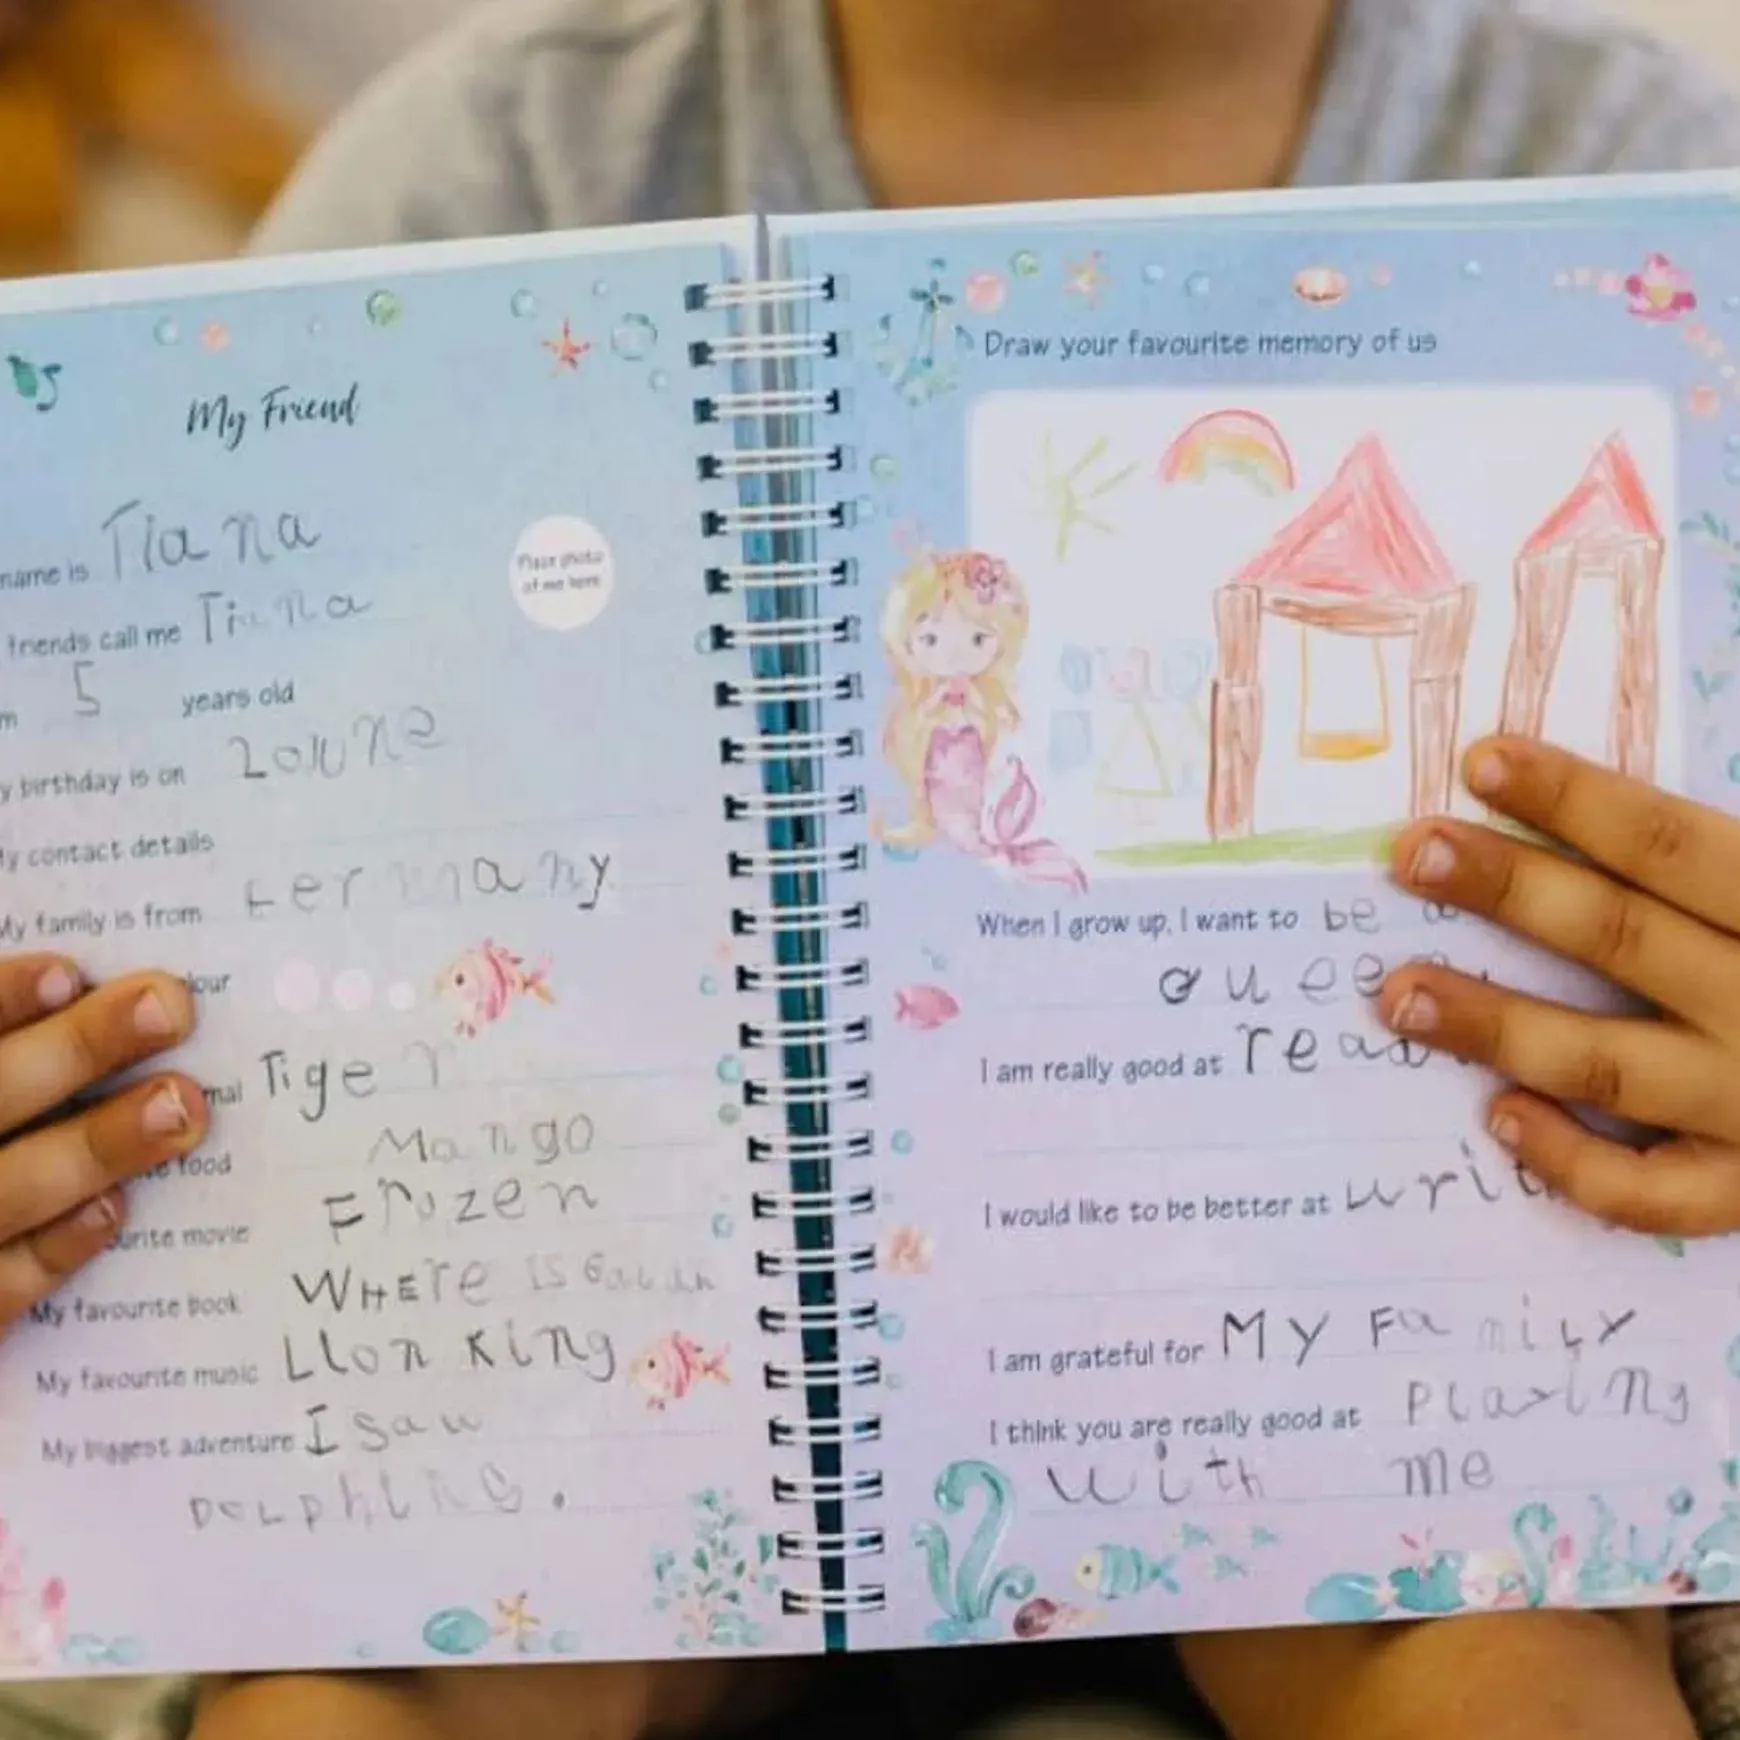 My Friend
name is Tiana
friends call me Tiana
Place photo
of me here
m 5 years old
y birthday is on
My contact details
My family is from Germany
lour
mal Tiger
food Mango
ourite movie Frozen
My favourite book WHEre is
My favourite music LIon King
My biggest adventure I saw
DOLphins.
Draw your favourite memory of us
When I grow up, I want to be a
quee
I am really good at read
I would like to be better at writ
I am grateful for MY FamiLY
I think you are really good at PLaying
with me